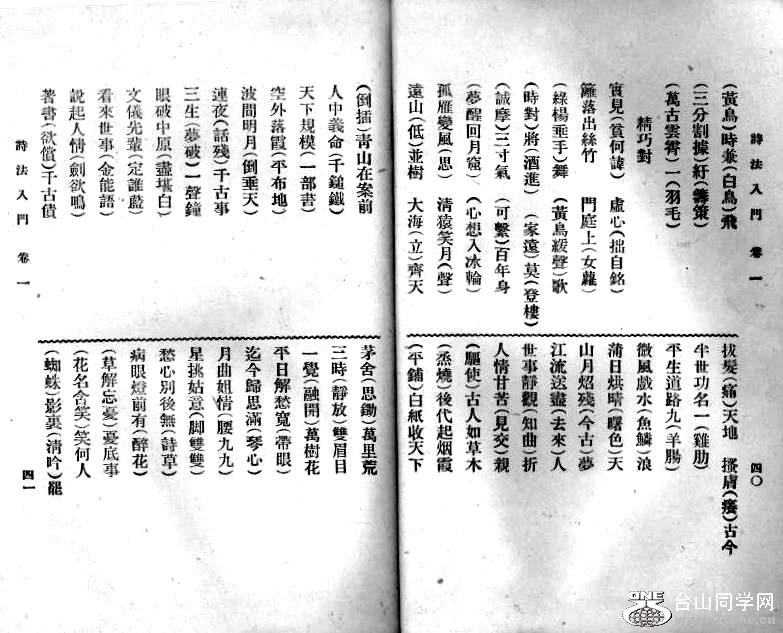 詩法入門 卷一
四〇
(黃鳥)時兼(白鳥)飛
(三分割據)紆(籌策)
(萬古雲霄)一(羽毛)
精巧對
實見(貧何諱) 虛心(拙自銘)
籬落出絲竹 門庭上(女蘿)
(綠楊垂手)舞 (黃鳥緩聲)歌
(時對)將(酒進) (家遠)莫(登樓)
(誠摩)三寸氣 (可繫)百年身
(夢醒回月窟 (心想入冰輪
孤雁變風(思) 清猿笑月(聲
遠山(低)並樹 大海(立)齊天
拔髮(痛)天地 搔膚(癢)古今
半世功名一(雞肋)
平生道路九(羊腸)
微風戲水(魚鱗)浪
蒲日烘晴(曙色)天
山月炤殘(今古)夢
江流送盡(去來)人
世事靜觀(知曲)折
人情甘苦(見交)親
(驅使)古人如草木
(烝燒)後代起烟霞
(平鋪)白紙收天下
(倒插)靑山在案前
人中義命(千鎚鐵)
天下規模(一部書)
空外落霞(平布地)
波間明月(倒垂天)
連夜(話殘)千古事
三生(夢破)一聲鐘
眼破中原(盡堪白)
文儀先輩(定誰藍)
看來世事(金能語)
說起人情(劍欲鳴)
著書(欲償)千古債
茅舍(思鋤)萬里荒
三時(靜放)雙眉目
一覺(融開)萬樹花
平日解愁寬(帶眼)
迄今歸思滿(琴心)
月曲姐情(腰九九)
星挑姑意(脚雙雙)
愁心別後無(詩草)
病眼燈前有(醉花)
(草解忘憂)憂底事
(花名含笑)笑何人
(蜘蛛)影裏(淸吟)罷
詩法入門 卷一
四一
ONE
台山同学网